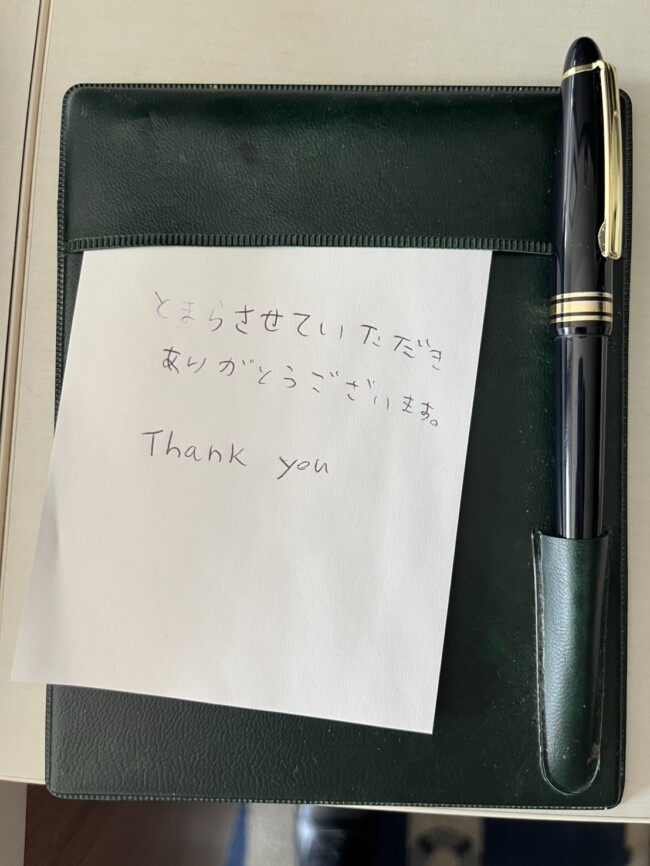 とまらさせていただき
ありがとうございます。
Thank you